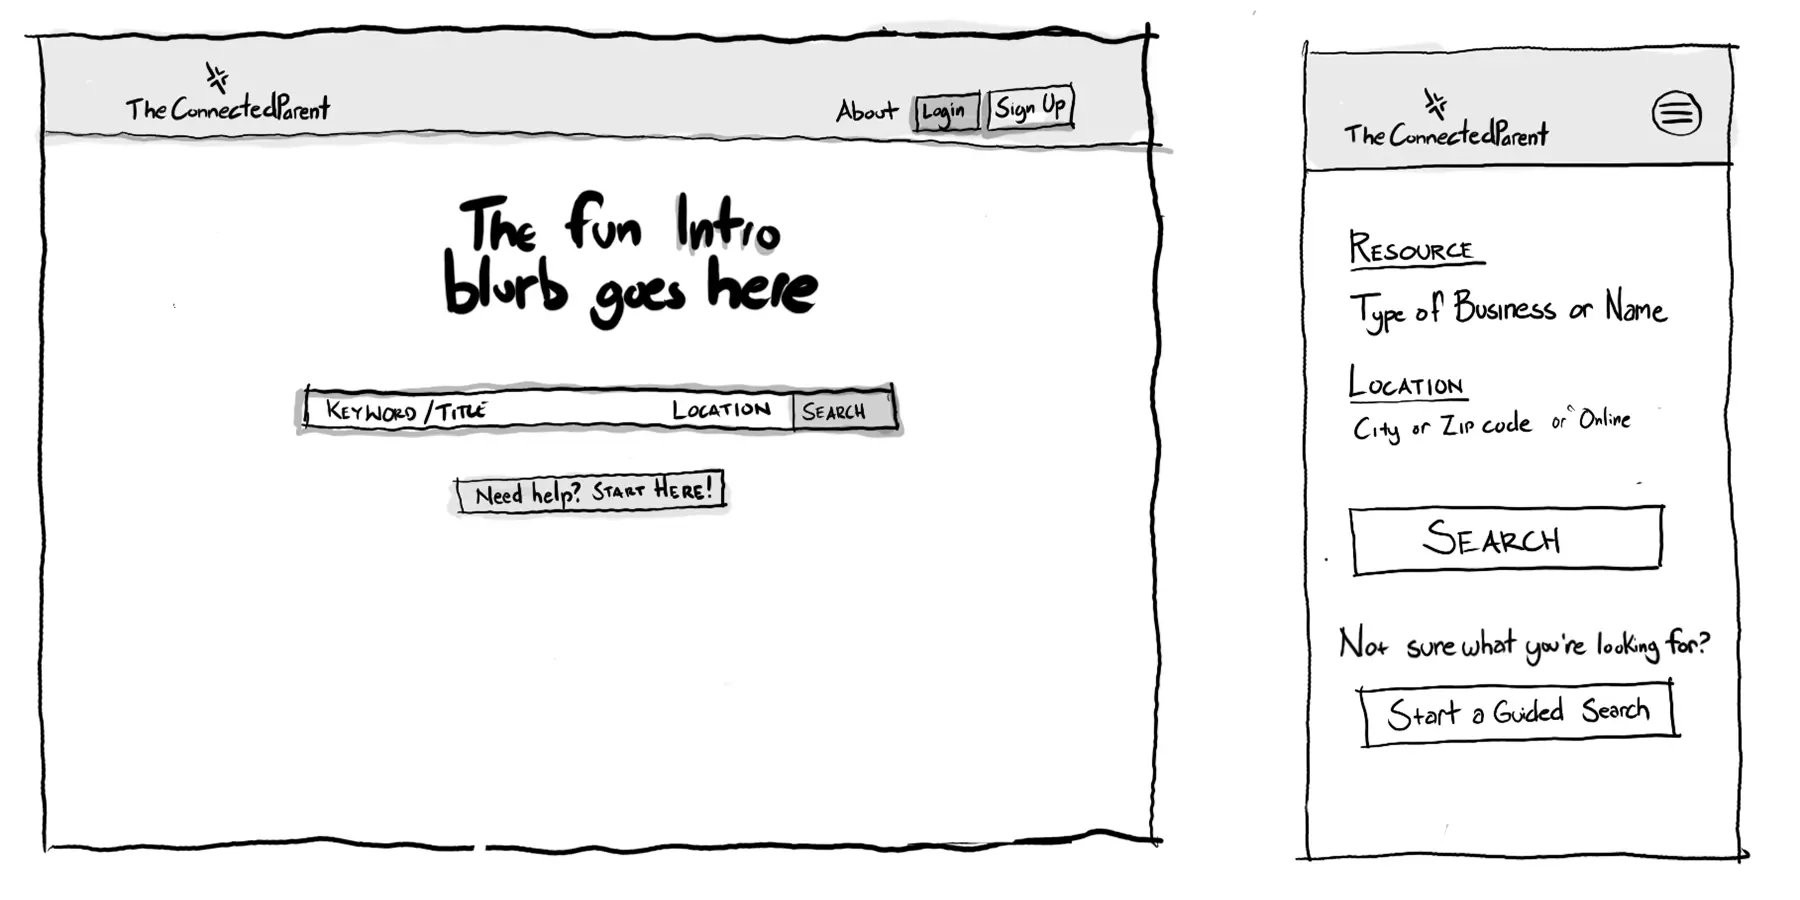 TheConnectedParent
About Login Sign Up
The fun Intro
blurb goes here
KEYWORD/TITLE LOCATION SEARCH
Need help? START HERE!
TheConnectedParent
RESOURCE
Type of Business or Name
LOCATION
City or Zip code or "Online
SEARCH
Not sure what you're looking for?
Start a Guided Search